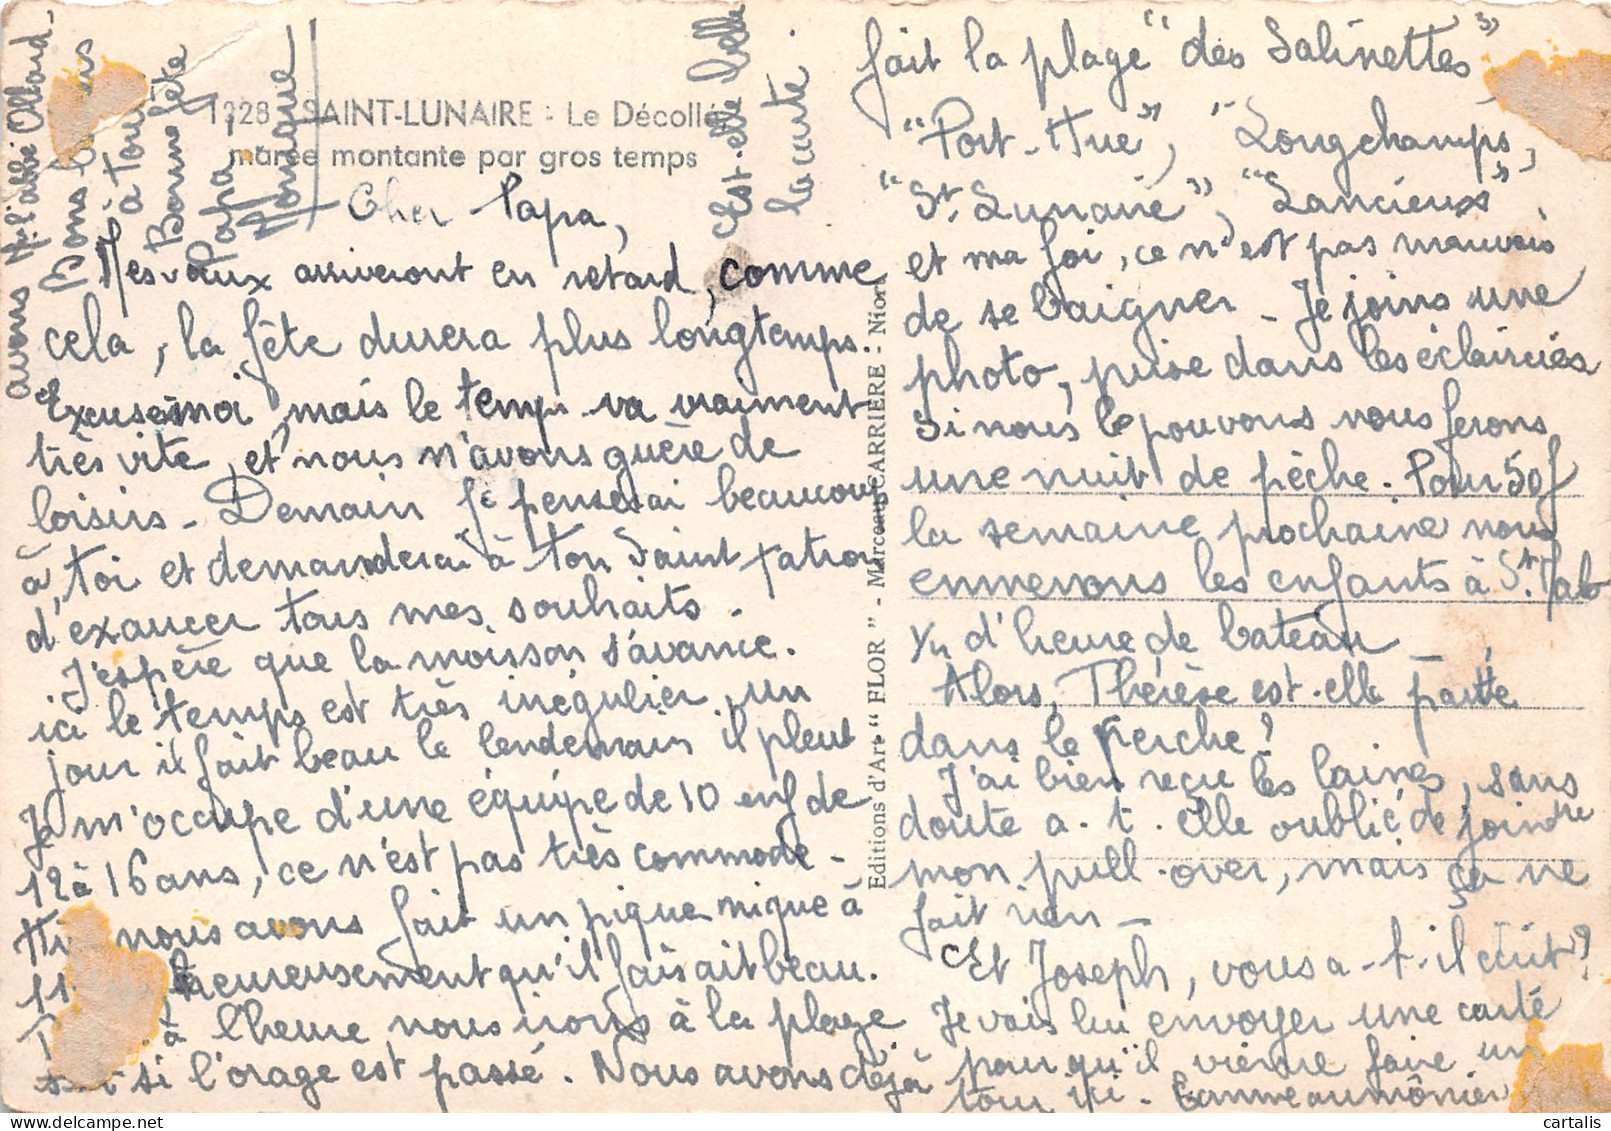 1328 - SAINT-LUNAIRE - Le Décollé
marée montante par gros temps
Cher Papa,
Mes vœux arriveront en retard, comme
cela, la fête durera plus longtemps.
Excuses moi, mais le temps va vraiment
très vite, et nous n'avons guère de
loisirs - Demain je penserai beaucoup
à toi et demanderai à ton Saint patron
d'exaucer tous mes souhaits.
J'espère que la moisson s'avance.
ici le temps est très irrégulier, un
jour il fait beau le lendemain il pleut
Je m'occupe d'une équipe de 10 enf de
12 à 16 ans, ce n'est pas très commode -
nous avons fait un pique nique à
11 heureusement qu'il faisait beau.
à l'heure nous irons à la plage
si l'orage est passé. Nous avons déjà
fait la plage "des Salinettes"
"Port-Hue", "Longchamps,
"St. Lunaire", "Lancieux"
et ma foi, ce n'est pas mauvais
de se baigner - Je joins une
photo, prise dans les éclaircies
Si nous le pouvons nous ferons
une nuit de pêche. Pour 50f
la semaine prochaine nous
emmenons les enfants à St. Malo
1/4 d'heure de bateau -
Alors, Thérèse est-elle partie
dans le Perche?
J'ai bien reçu les laines, sans
doute a-t-elle oublié de joindre
mon pull-over, mais ça ne
fait rien -
Et Joseph, vous a-t-il écrit?
Je vais lui envoyer une carte
pour qu'il vienne faire un
tour ici - comme aumônier
avons Mr. l'abbé Allard -
Bons baisers
à tous
Bonne fête
Papa!
Monique
Est-elle belle
la carte.
Editions d'Art "FLOR" - Marceau CARRIERE - Niort